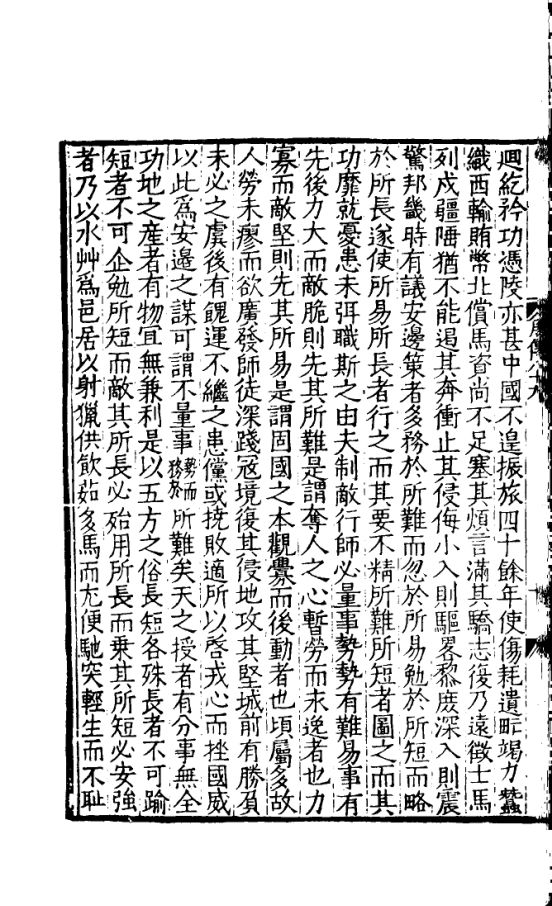 迴紇矜功憑陵亦甚中國不遑振旅四十餘年使傷耗遺甿竭力蠶
織西輸賄幣北償馬資尚不足塞其煩言滿其驕志後乃遠徵士馬
列戍疆陲猶不能遏其奔衝止其侵侮小入則驅畧黎庶深入則震
驚邦畿時有議安邊策者多務於所難而忽於所易勉於所短而略
於所長遂使所易所長者行之而其要不精所難所短者圖之而其
功靡就憂患未弭職斯之由夫制敵行師必量事勢勢有難易事有
先後力大而敵脆則先其所難是謂奪人之心暫勞而永逸者也力
寡而敵堅則先其所易是謂固國之本觀釁而後動者也頃屬多故
人勞未瘳而欲廣發師徒深踐寇境復其侵地攻其堅城前有勝負
未必之虞後有餽運不繼之患儻或撓敗適所以啓戎心而挫國威
以此爲安邊之謀可謂不量事勢而務於所難矣天之授者有分事無全
功地之產者有物宜無兼利是以五方之俗長短各殊長者不可踰
短者不可企勉所短而敵其所長必殆用所長而乗其所短必安強
者乃以水艸爲邑居以射獵供飲茹多馬而尤便馳突輕生而不耻